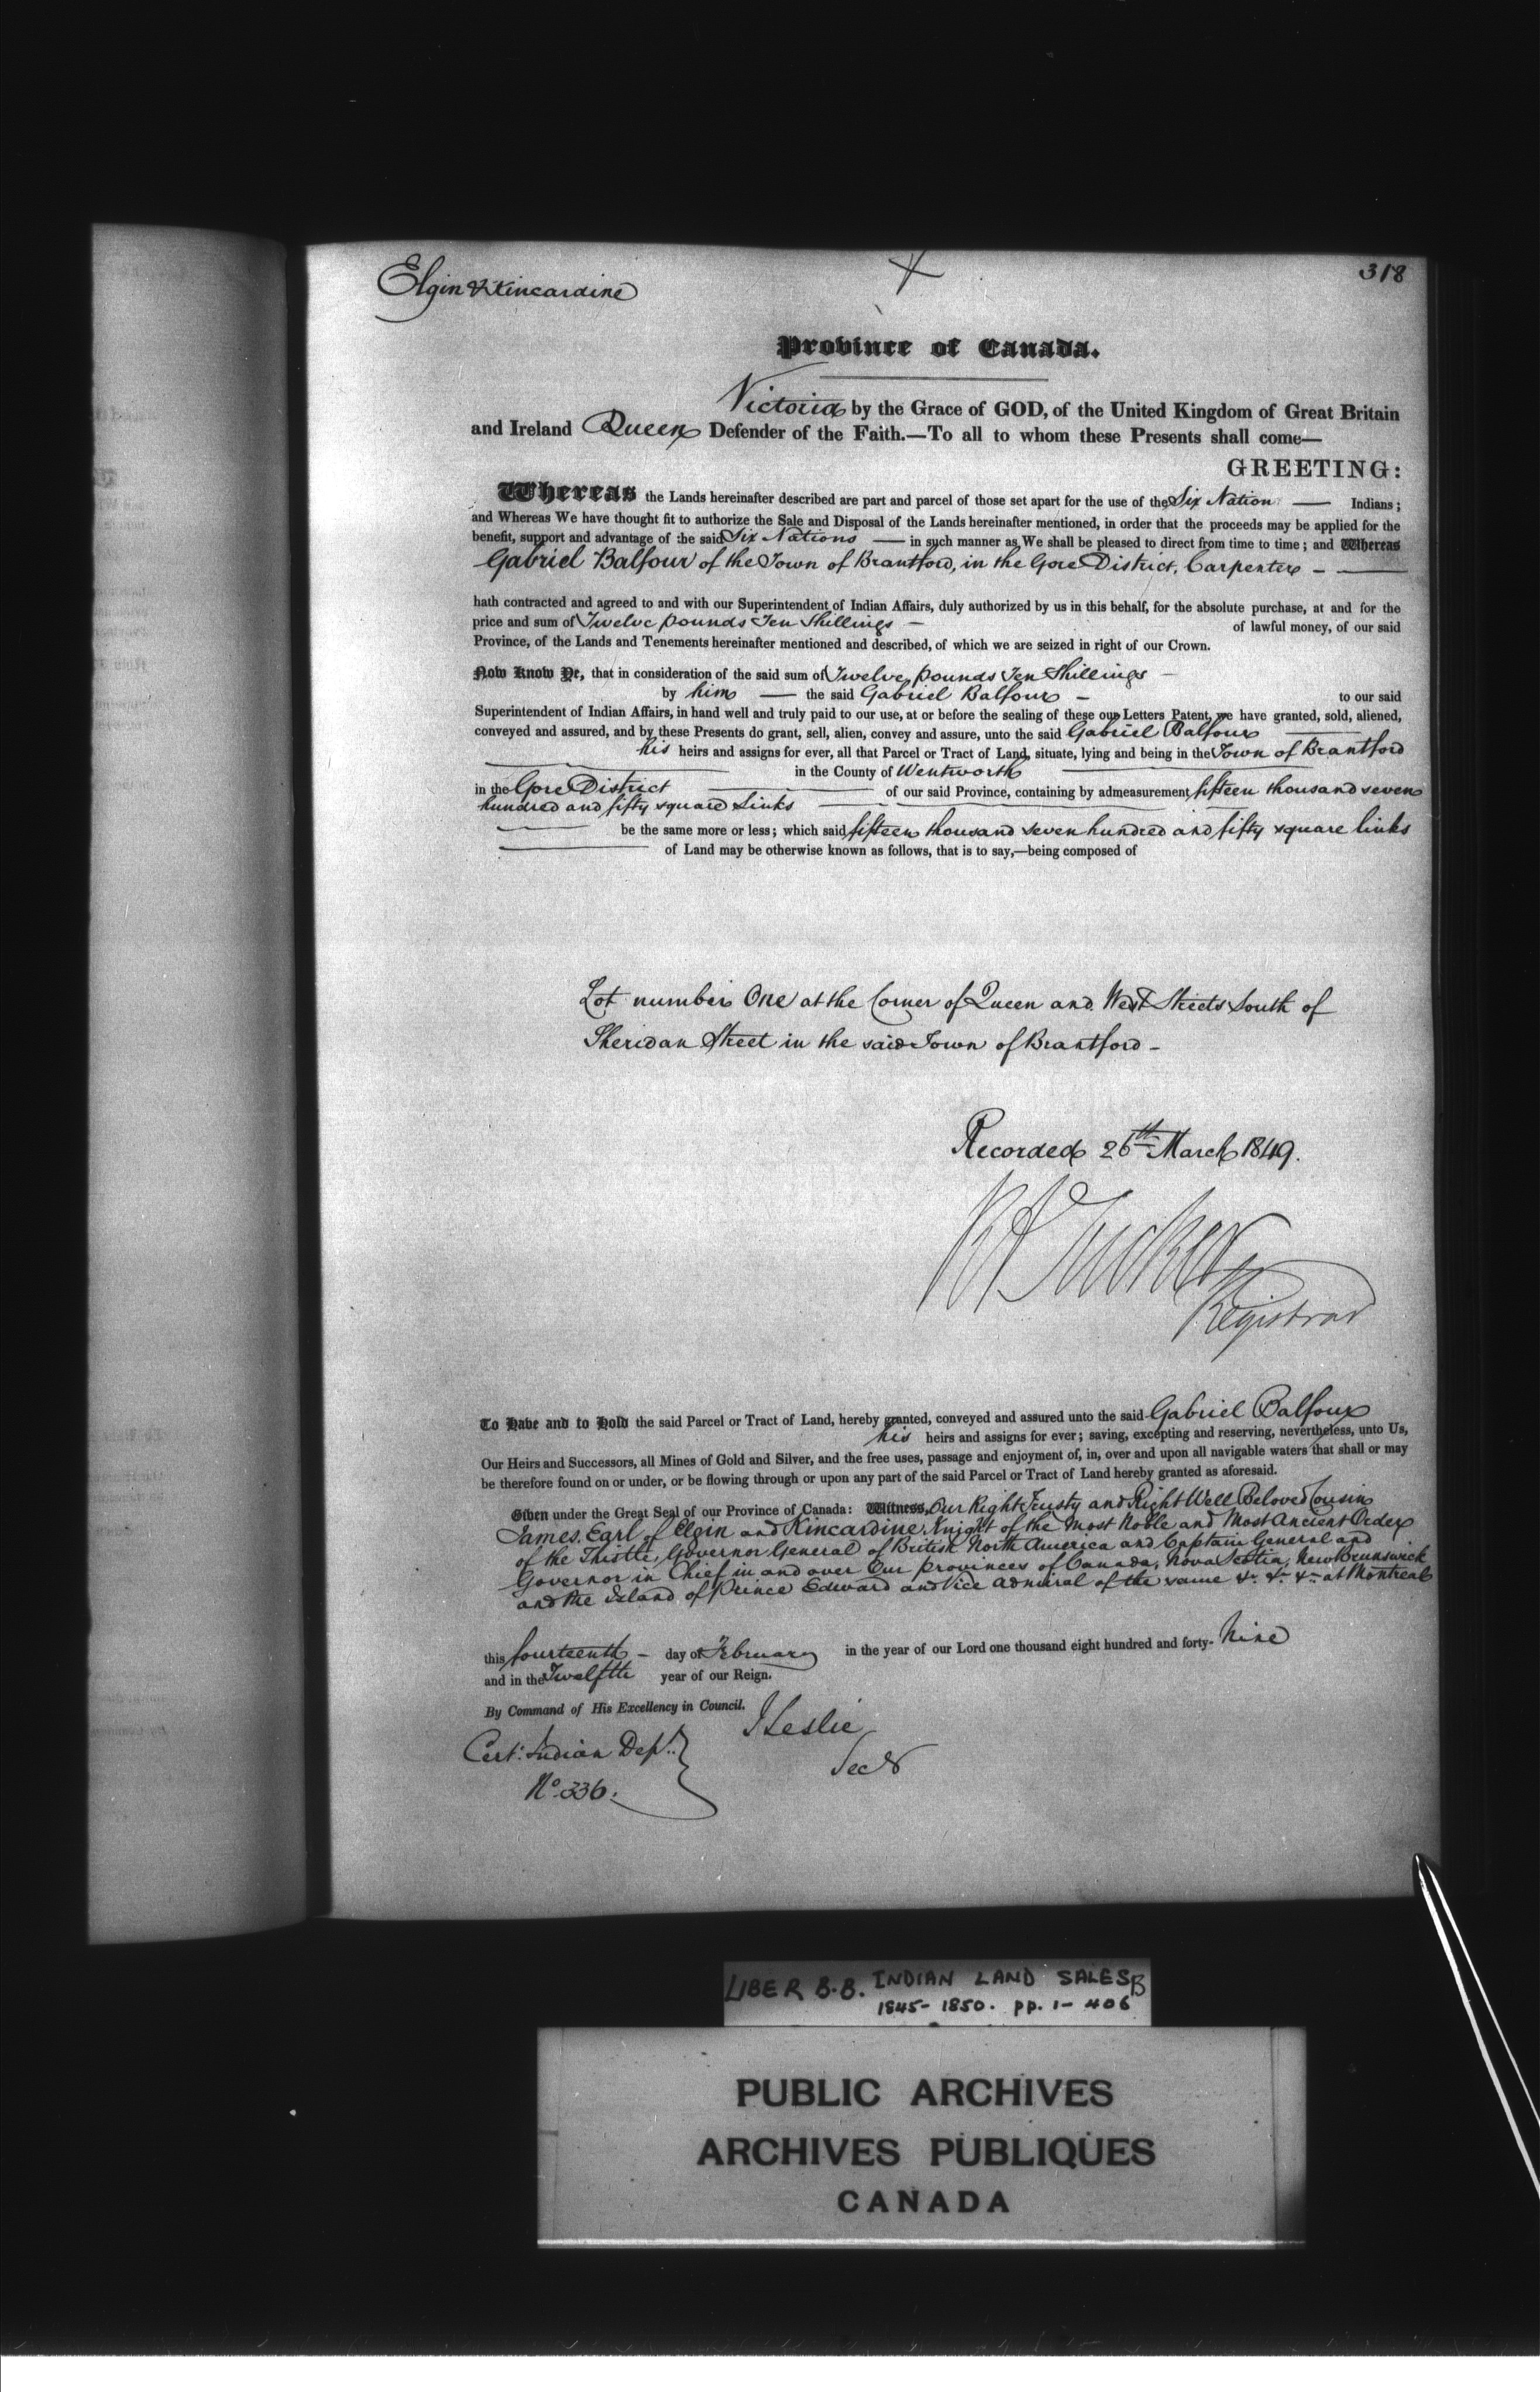 Elgin & Kincardine
318
Province of Canada.
Victoria by the Grace of GOD, of the United Kingdom of Great Britain
and Ireland Queen Defender of the Faith.—To all to whom these Presents shall come—
GREETING:
Whereas the Lands hereinafter described are part and parcel of those set apart for the use of the Six Nation — Indians;
and Whereas We have thought fit to authorize the Sale and Disposal of the Lands hereinafter mentioned, in order that the proceeds may be applied for the
benefit, support and advantage of the said Six Nations — in such manner as We shall be pleased to direct from time to time; and Whereas
Gabriel Balfour of the Town of Brantford, in the Gore District, Carpenter - —
hath contracted and agreed to and with our Superintendent of Indian Affairs, duly authorized by us in this behalf, for the absolute purchase, at and for the
price and sum of Twelve pounds Ten Shillings — of lawful money, of our said
Province, of the Lands and Tenements hereinafter mentioned and described, of which we are seized in right of our Crown.
Now Know Ye, that in consideration of the said sum of Twelve pounds Ten Shillings —
by him — the said Gabriel Balfour - to our said
Superintendent of Indian Affairs, in hand well and truly paid to our use, at or before the sealing of these our Letters Patent, we have granted, sold, aliened,
conveyed and assured, and by these Presents do grant, sell, alien, convey and assure, unto the said Gabriel Balfour —
his heirs and assigns for ever, all that Parcel or Tract of Land, situate, lying and being in the Town of Brantford
— in the County of Wentworth —
in the Gore District — of our said Province, containing by admeasurement fifteen thousand seven
hundred and fifty square Links —
— be the same more or less; which said fifteen thousand seven hundred and fifty square links
— of Land may be otherwise known as follows, that is to say,—being composed of
Lot number One at the Corner of Queen and West Streets South of
Sheridan Street in the said Town of Brantford -
Recorded 26th March 1849.
R A Tucker
Registrar
To Have and to Hold the said Parcel or Tract of Land, hereby granted, conveyed and assured unto the said Gabriel Balfour
his heirs and assigns for ever; saving, excepting and reserving, nevertheless, unto Us,
Our Heirs and Successors, all Mines of Gold and Silver, and the free uses, passage and enjoyment of, in, over and upon all navigable waters that shall or may
be therefore found on or under, or be flowing through or upon any part of the said Parcel or Tract of Land hereby granted as aforesaid.
Given under the Great Seal of our Province of Canada: Witness, Our Right Trusty and Right Well Beloved Cousin
James, Earl of Elgin and Kincardine, Knight of the Most Noble and Most Ancient Order
of the Thistle, Governor General of British North America and Captain General and
Governor in Chief in and over Our provinces of Canada, Nova Scotia, New Brunswick
and the Island of Prince Edward and Vice Admiral of the same &c &c &c at Montreal
this fourteenth - day of February in the year of our Lord one thousand eight hundred and forty- Nine
and in the Twelfth year of our Reign.
By Command of His Excellency in Council.
J Leslie
Secy
Cert. Indian Dept.
No. 336.
LIBER B.B. INDIAN LAND SALES B
1845-1850. pp. 1-406
PUBLIC ARCHIVES
ARCHIVES PUBLIQUES
CANADA